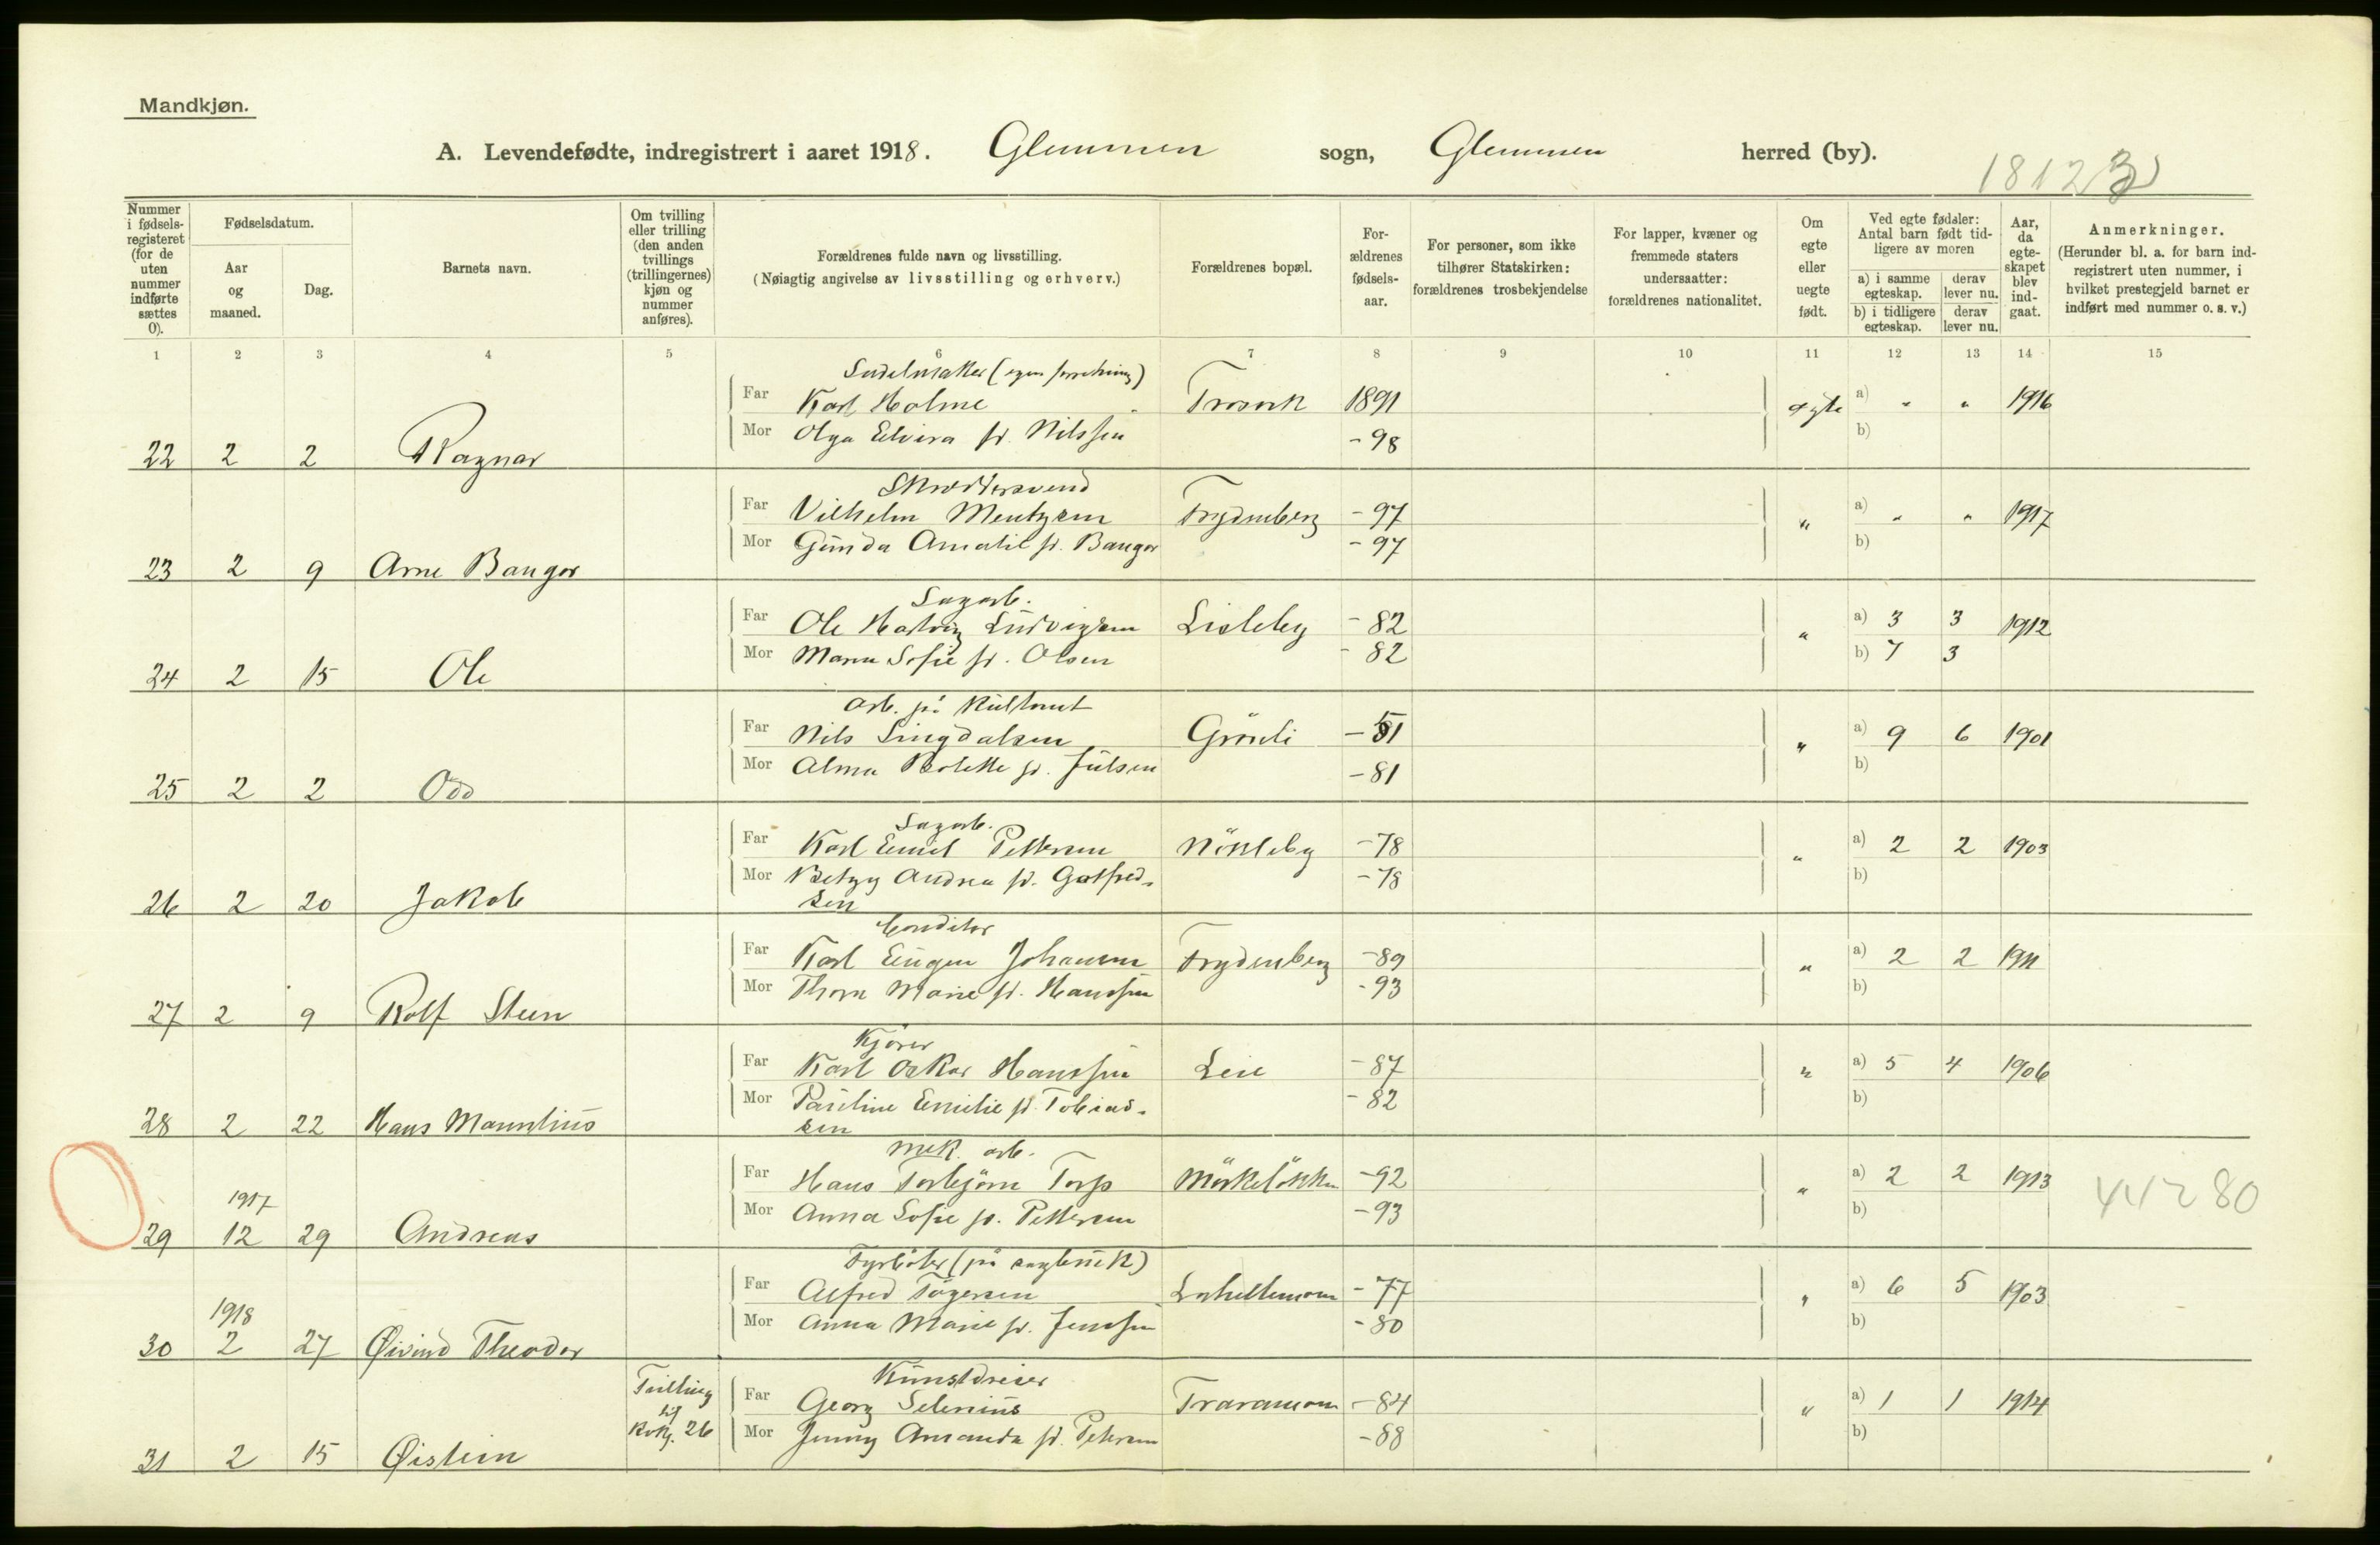 Mandkjøn.
A. Levendefødte, indregistrert i aaret 1918. Glemmen sogn, Glemmen herred (by).
1812
Nummer i fødsels-registeret (for de uten nummer indførte sættes 0).
Fødselsdatum.
Aar og maaned.
Dag.
Barnets navn.
Om tvilling eller trilling (den anden tvillings (trillingernes) kjøn og nummer anføres).
Forældrenes fulde navn og livsstilling.
(Nøiagtig angivelse av livsstilling og erhverv.)
Forældrenes bopæl.
For-ældrenes fødsels-aar.
For personer, som ikke tilhører Statskirken: forældrenes trosbekjendelse
For lapper, kvæner og fremmede staters undersaatter: forældrenes nationalitet.
Om egte eller uegte født.
Ved egte fødsler: Antal barn født tid-ligere av moren
a) i samme egteskap. derav lever nu.
b) i tidligere egteskap. derav lever nu.
Aar, da egte-skapet blev ind-gaat.
Anmerkninger.
(Herunder bl. a. for barn ind-registrert uten nummer, i hvilket prestegjeld barnet er indført med nummer o. s. v.)
1 2 3 4 5 6 7 8 9 10 11 12 13 14 15
Sadelmaker (egen forretning)
Far Karl Holme Trosvik 1891 egte a) " " 1916
Mor Olga Elvira f. Nilssen -98 b)
22 2 2 Ragnar
Skræddersvend
Far Vilhelm Mentzsen Frydenberg -97 " a) " " 1917
Mor Gunda Amalie f. Bangor -97 b)
23 2 9 Arne Bangor
Sagarb.
Far Ole Hartvig Ludvigsen Lisleby -82 " a) 3 3 1912
Mor Maren Sofie f. Olsen -82 b) 7 3
24 2 15 Ole
Arb. på
Far Nils Lingdalsen Grønli -81 " a) 9 6 1901
Mor Alma f. Julsen -81 b)
25 2 2 Odd
Sagarb.
Far Karl Emil Pettersen Nökleby -78 " a) 2 2 1903
Mor Betzy Andrea f. Gotfred-
sen -78 b)
26 2 20 Jakob
Conditor
Far Karl Eugen Johansen Frydenberg -89 " a) 2 2 1911
Mor Thora Marie f. Hanssen -93 b)
27 2 9 Rolf Steen
Kjører
Far Karl Oskar Hanssen Leie -87 " a) 5 4 1906
Mor Pauline Emilie f. Tobias-
sen -82 b)
28 2 22 Hans
Mek. arb.
Far Hans Torbjørn Torp -92 " a) 2 2 1913 44280
Mor Anna Sofie f. Pettersen -93 b)
1917
29 12 29 Andreas
Fyrbøter (på sagbruk)
Far Alfred Tögersen -77 " a) 6 5 1903
Mor Anna Marie f. Jenssen -80 b)
1918
30 2 27 Øivind Theodor
Tvilling
til
Kvkj. 26
Kunstdreier
Far Georg Selenius Traramoen -84 " a) 1 1 1914
Mor Jenny Amanda f. Petersen -88 b)
31 2 15 Øistein